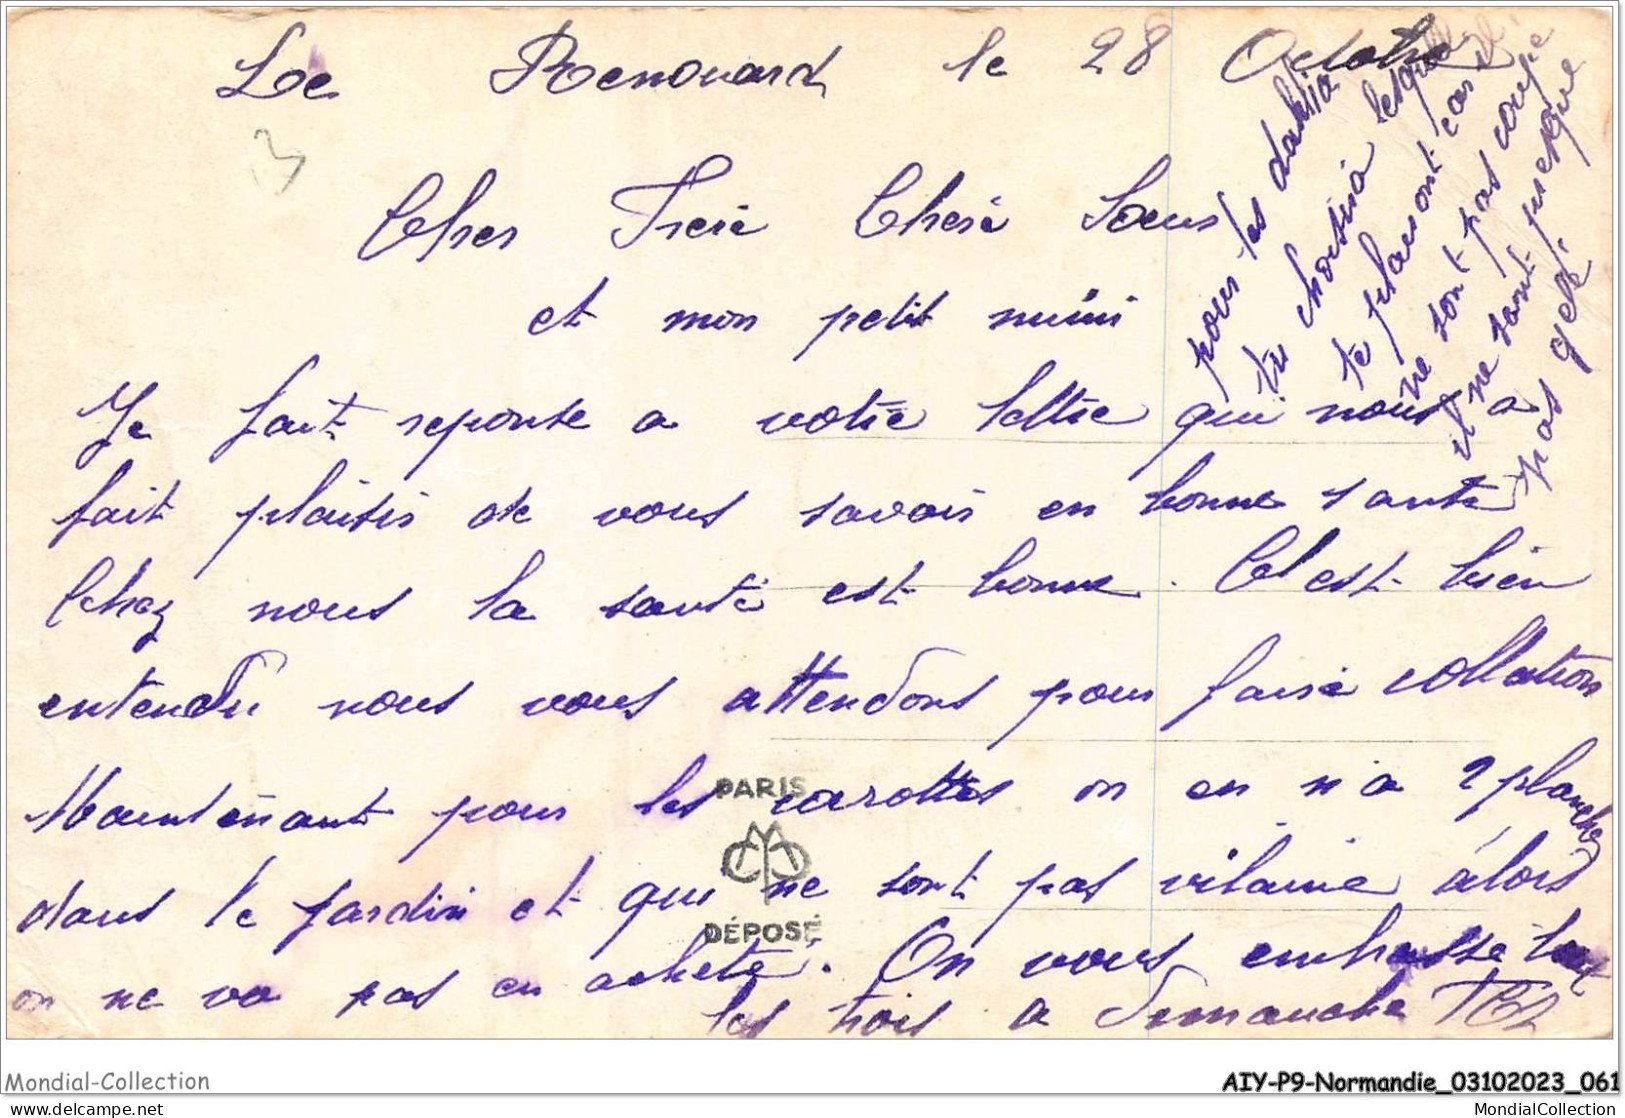 Le Renouard le 28 Octobre
Cher Frere Chere Soeur
et mon petit mimi
Je fait reponse a votre lettre qui nous a
fait plaisir de vous savoir en bonne sante
Chez nous la santé est bonne. C'est bien
entendu nous vous attendons pour faire collation
Maintenant pour les carottes on en n'a 2 planche
dans le jardin et qui ne sont pas vilaine alors
on ne va pas en acheté. On vous embrasse tous
les trois a Dimanche
pour les dahlia
tu choisira lesquel
te plairont car il
ne sont pas coupé
il ne sont presque
pas gelé
PARIS
DÉPOSÉ
Mondial-Collection
AIY-P9-Normandie_03102023_061
www.delcampe.net
MondialCollection